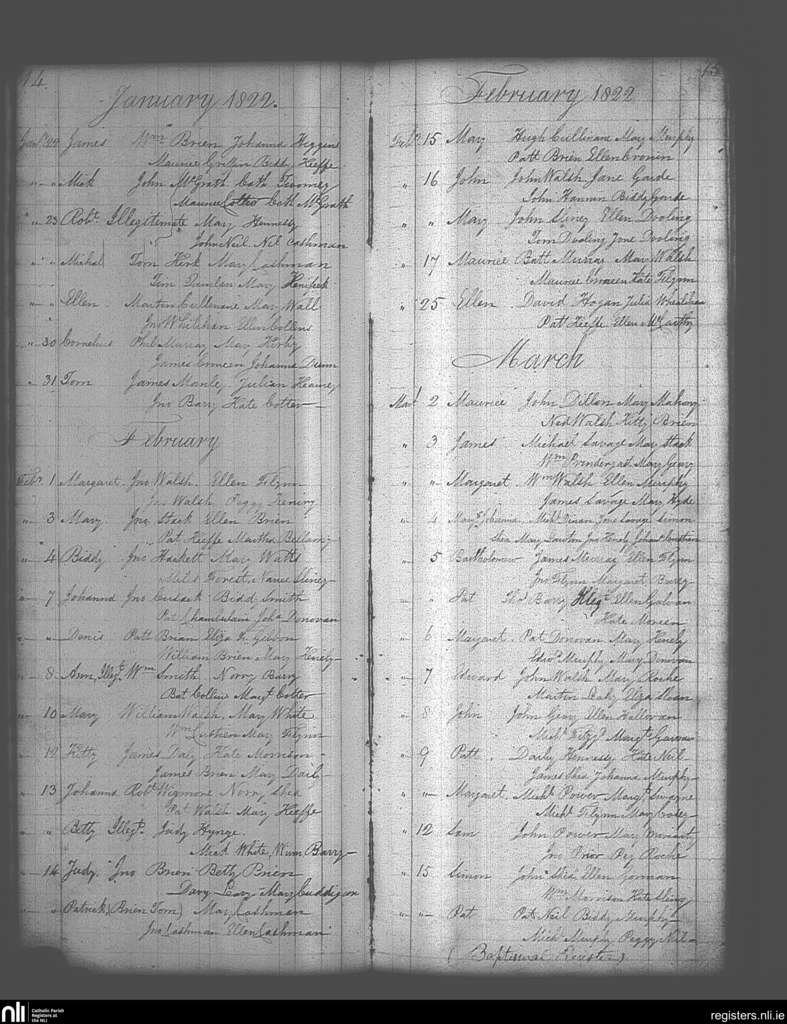 14.
January 1822.
Janry 22 James Wm Brien Johanna Higgins
Maurice Griffin Biddy Keeffe
" - " Mick John McGrath Cath Twomey
Maurice Cotter Cath McGrath
" " 23 Robt Illegitimate Mary Hennessy
John Neil Nel Cashman
" " Michal Tom Herk May Cashman
Tim Quinlan May
" " Ellen Martin Cullinane May Wall
Jno Whelehan Ellen Collens
" 30 Cornelius Phil Murray May Kirby
James Johanna Dunn
" 31 Tom James Manley Julian Heaney
Jno Bary Kate Cotter
February
Feby 1 Margaret Jno Walsh Ellen Flynn
Jno Walsh Peggy
" 3 Mary Jno Stack Ellen Brien
Pat Keeffe Martha Bellamy
" 4 Biddy Jno Hackett May Watts
Miles Forest, Nance
" 7 Johanna Jno Cusack Bidd Smith
Pat Chamberlain Joha Donovan
" " Denis Patt Brian Eliza
William Brien May Henely
" 8 Ann, Illegt Wm Smith Norry Barry
Bat Collins Margt Cotter
" 10 Mary William Walsh May White
Wm May Flynn
" 12 Kitty James Daly Kate Morrison
James Brien May Daily
" 13 Johanna Robt Wigmore Norry Shea
Pat Walsh May Keeffe
" " Betty Illegt. Judy Hynge.
Mick White, Wum Barry
" 14 Judy Jno Brien Betty Brien
Davy Mary Cuddigan
" " Patrick (Brien Tom) May Cashman
Jno Cashman Ellen Cashman
15
February 1822
Feby 15 May Hugh Cullinane May Murphy
Patt Brien Ellen Cronin
" 16 John John Walsh Jane Garde
John Hannan Biddy Garde
" " Mary John Ellen Dooling
Tom Dooling Jane Dooling
" 17 Maurice Batt Murray May Walsh
Maurice Kate Flynn
" 25 Ellen David Hogan Julia Whelehan
Pat Keeffe Ellen McCarthy
March
Mar 2 Maurice John Dillon May Mahony
Ned Walsh Kitty Brien
" 3 James Michael Savage May Stack
Wm Prendergast May Geary
" " Margaret Wm Walsh Ellen Murphy
James Savage May Hyde
" 4 Johanna Michl Dinan Jane Savage Simon
Shea May Jno Henely
" 5 Bartholomew James Murray Ellen Flynn
Jno Flynn Margaret Barry
" " Pat Barry Illegt Ellen Galvan
Kate
" 6 Margaret Pat Donovan May Henely
Edwd Murphy May Donovan
" 7 Edward John Walsh May Roche
Martin Eliza Sloan
" 8 John John Geary Ellen Halloran
Michl Margt
" 9 Patt Darby Hennessy Kate Neil
James Shea Johanna Murphy
" " Margaret Michl Power Margt Swayne
Michl Flynn May Casey
" 12 Sam John Power May
Jno Prior Peg Roche
" 15 Simon John Shea Ellen Gorman
Wm Morrison Kate
" " Pat Pat Neil Biddy Murphy
Michl Murphy Peggy Neil
(Baptismal Register)
nli
Catholic Parish
Registers at
the NLI
registers.nli.ie